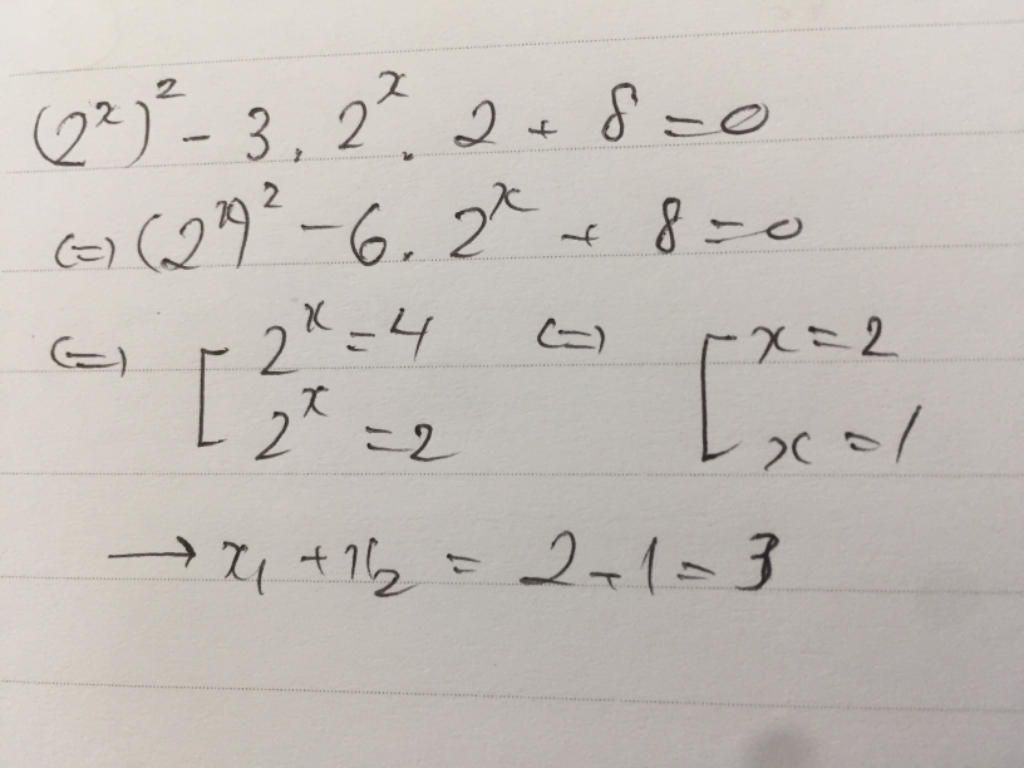 (2^x)^2 - 3 . 2^x . 2 + 8 = 0
(=) (2^x)^2 - 6 . 2^x + 8 = 0
(=) [ 2^x = 4 (=) [ x = 2
2^x = 2 x = 1
→ x_1 + x_2 = 2 + 1 = 3